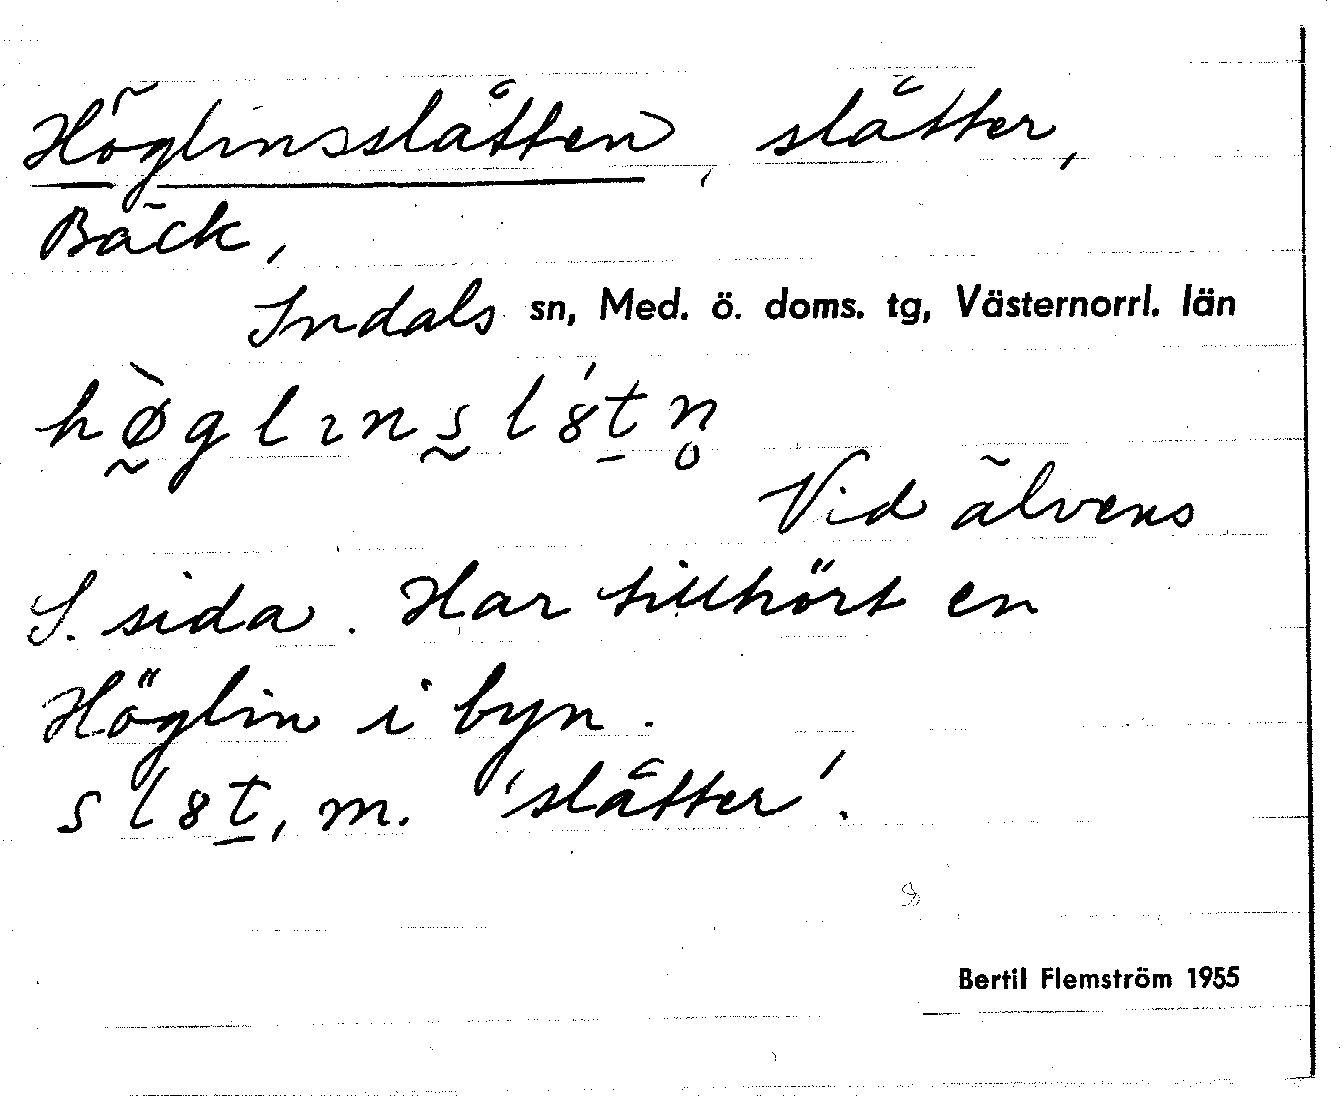 Höglinsslåtten, slåtter,
Bäck,
Indals sn, Med. ö. doms. tg, Västernorrl. län
hø̰̀glɪns̰l8́t̠n̥
Vid älvens
S. sida. Har tillhört en
Höglin i byn.
sl8t̠, m. 'slåtter'.
Bertil Flemström 1955